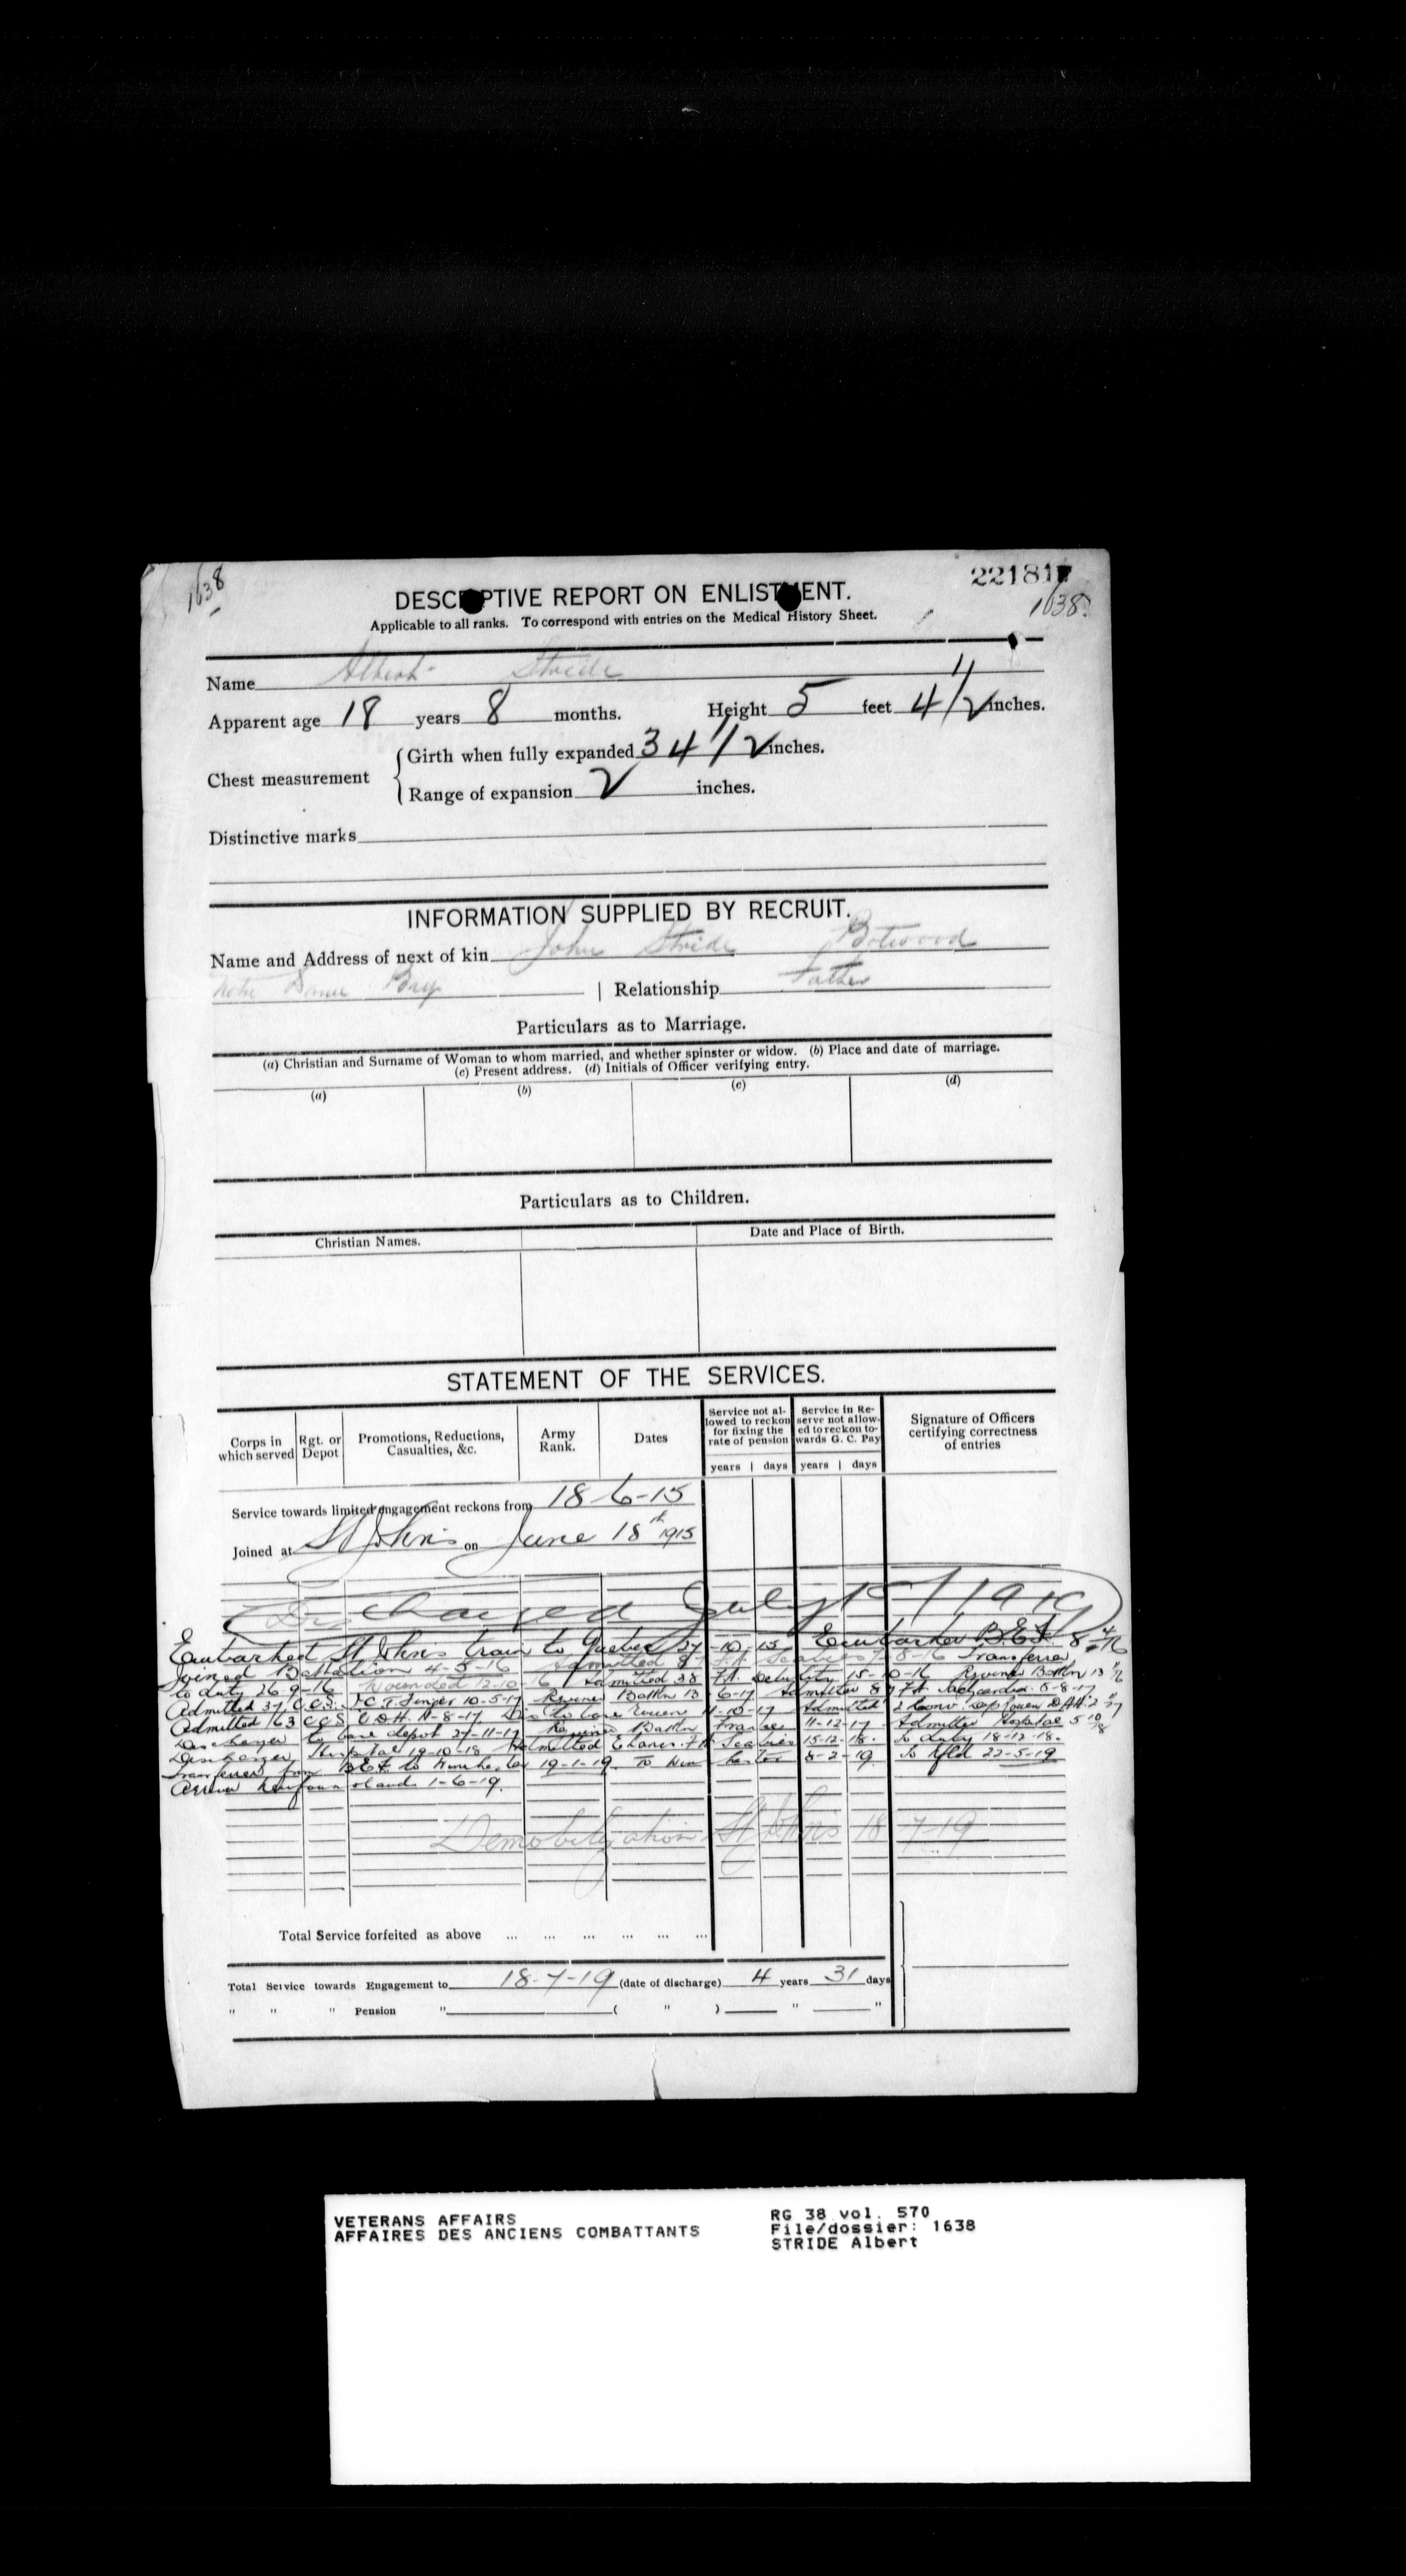 1638
221817
1638.
DESCRIPTIVE REPORT ON ENLISTMENT.
Applicable to all ranks. To correspond with entries on the Medical History Sheet.
Name Albert Stride
Apparent age 18 years 8 months. Height 5 feet 4 1/2 inches.
Chest measurement
Girth when fully expanded 34 1/2 inches.
Range of expansion 2 inches.
Distinctive marks
INFORMATION SUPPLIED BY RECRUIT.
Name and Address of next of kin John Stride Botwood
Notre Dame Bay | Relationship Father
Particulars as to Marriage.
(a) Christian and Surname of Woman to whom married, and whether spinster or widow. (b) Place and date of marriage.
(c) Present address. (d) Initials of Officer verifying entry.
(a) (b) (c) (d)
Particulars as to Children.
Christian Names. Date and Place of Birth.
STATEMENT OF THE SERVICES.
Corps in which served
Rgt. or Depot
Promotions, Reductions, Casualties, &c.
Army Rank.
Dates
Service not allowed to reckon for fixing the rate of pension
Service in Reserve not allowed to reckon towards G. C. Pay
Signature of Officers certifying correctness of entries
years | days years | days
Service towards limited engagement reckons from 18-6-15
Joined at St Johns on June 18th 1915
Discharged July 1919
Embarked St Johns train to Quebec 27-10-15 Embarked B.E.F. 8-4-16
Joined Battalion 4-5-16 Admitted 87 F.A. Scabies 8-16 Transferred
to duty 26-9-16 Wounded 12-10-16 Admitted 38 F.A. Debility 15-10-16 Rejoined Battn 13
Admitted 37 C.C.S. 10-5-17 Rejoined Battn 13-6-17 Admitted 87 F.A. 5-8-17
Admitted 63 CCS 11-8-17 Dis to base Rouen 11-10-17 Admitted 2 Conv. Dep Rouen D.A.H. 2
Discharged to base depot 27-11-17 Rejoined Battn France 11-12-17 Admitted Hospital 5
Discharged Hospital 19-10-18 Admitted F.A. Scabies 15-12-18. To duty 18-12-18.
Transferred from BEF to Winchester 19-1-19. To Winchester 8-2-19. To Nfld 22-5-19
Arrived Newfoundland 1-6-19.
Demobilization St Johns 18-7-19
Total Service forfeited as above ... ... ... ... ... ...
Total Service towards Engagement to 18-7-19 (date of discharge) 4 years 31 days
" " " Pension " ( " ) " "
VETERANS AFFAIRS
AFFAIRES DES ANCIENS COMBATTANTS
RG 38 vol. 570
File/dossier: 1638
STRIDE Albert